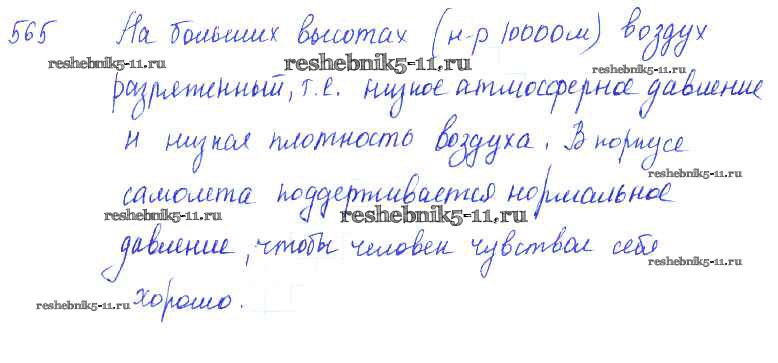 565 На больших высотах (н-р 10000м) воздух
reshebnik5-11.ru reshebnik5-11.ru reshebnik5-11.ru
разряженный, т.е. низкое атмосферное давление
и низкая плотность воздуха. В корпусе
reshebnik5-11.ru
самолета поддерживается нормальное
reshebnik5-11.ru reshebnik5-11.ru
давление, чтобы человек чувствовал себя
reshebnik5-11.ru
хорошо.
reshebnik5-11.ru